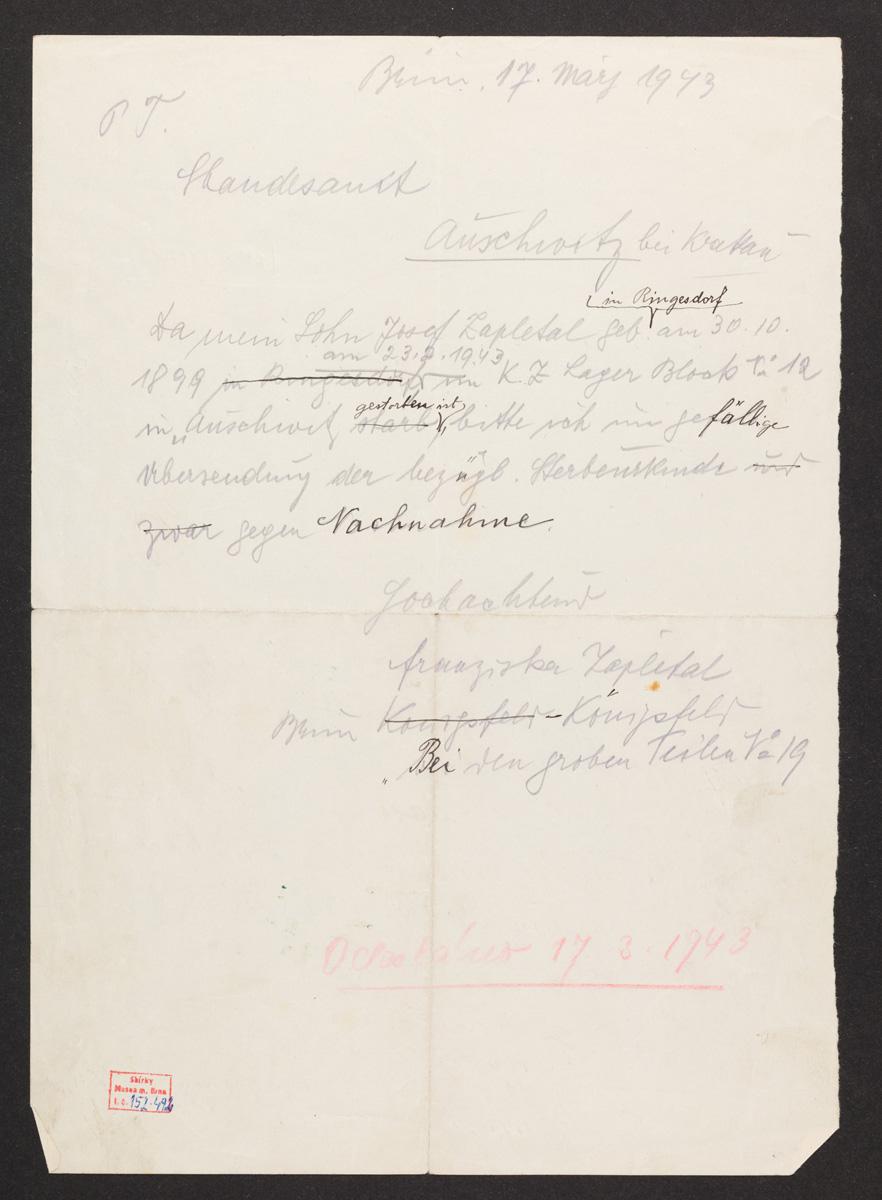 Brünn, 17. März 1943
P T.
Standesamt
Auschwitz bei Krakau
in Ringesdorf
Da mein Sohn Josef Zapletal geb. am 30. 10.
am 23.2.1943
1899 in Ringesdorf im K. Z Lager Block No 12
gestorben ist,
in „Auschwitz starb, bitte ich um gefällige
Übersendung der bezügl. Sterbeurkunde und
zwar gegen Nachnahme.
Hochachtend
Franziska Zapletal
Brünn Königsfeld - Königsfeld
„Bei den groben Teilen No 19
Odesláno 17 3. 1943
Sbírky
Musea m. Brna
I. č.